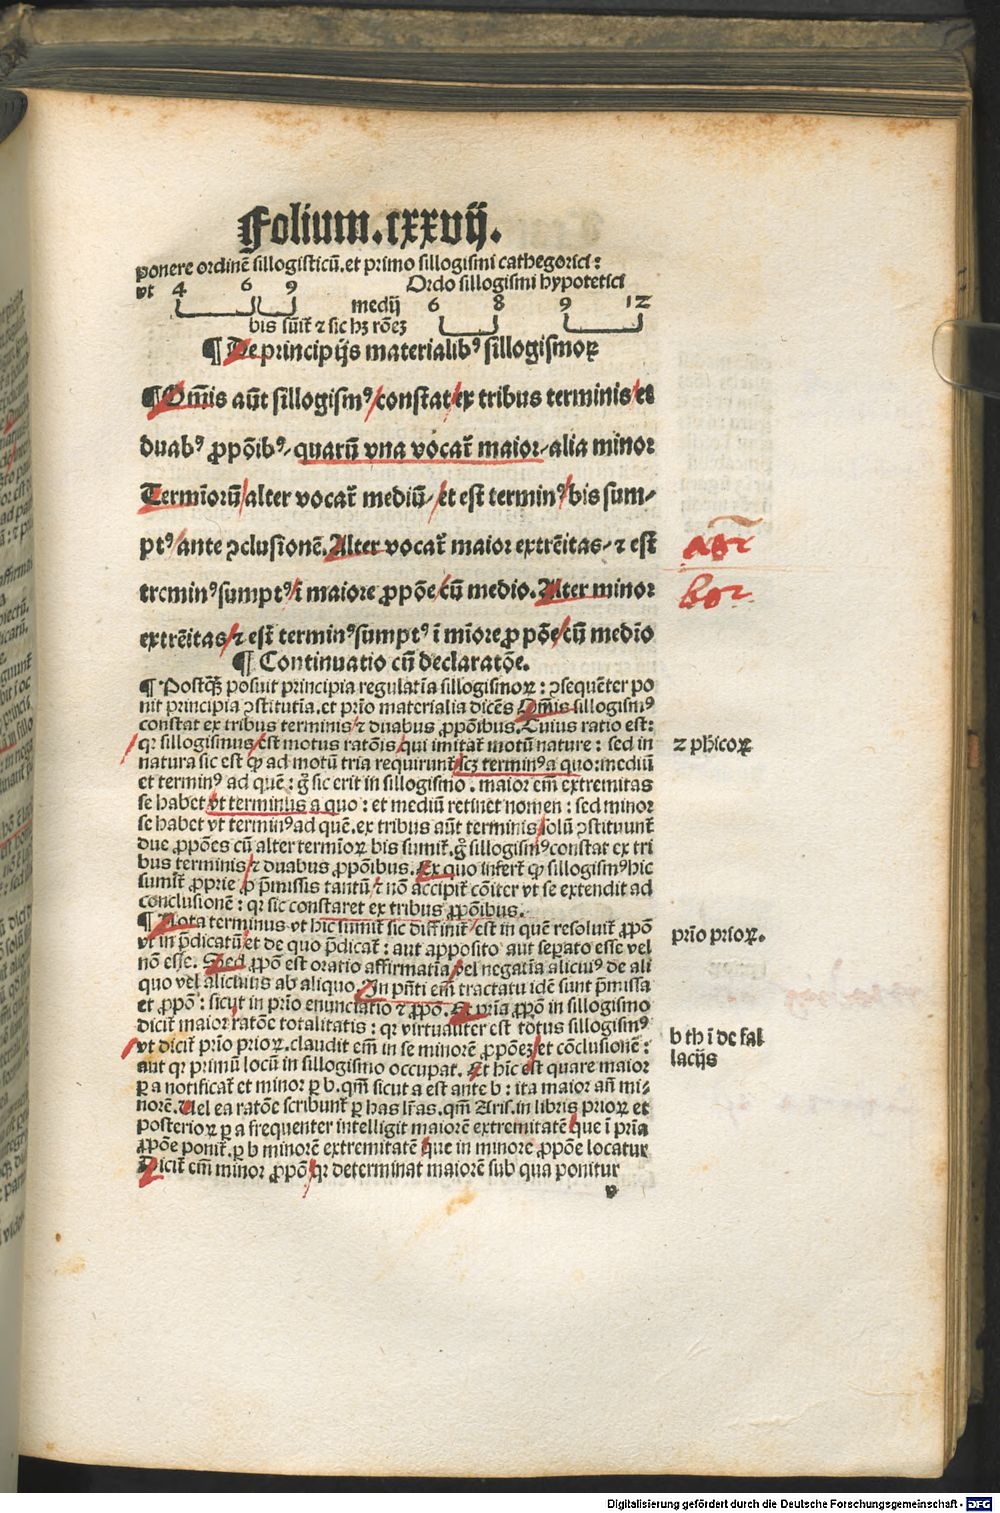 Folium.cxxvij.
ponere ordinē sillogisticū.et primo sillogismi cathegorici:
vt 4 6 9 Ordo sillogismi hypotetici
medij 6 8 9 12
bis sūit̄ ⁊ sic hꝫ rōeꝫ
¶ De principijs materialibꝰ sillogismoꝝ
¶ Om̄is aūt sillogismꝰ constat ex tribus terminis et
duabꝰ ꝓpōibꝰ, quarū vna vocat̄ maior, alia minor
Termīorū alter vocat̄ mediū, et est terminꝰ bis sum-
ptꝰ ante ɔclusionē. Alter vocat̄ maior extrēitas, ⁊ est
terminꝰ sumptꝰ ī maiore ꝓpōe cū medio. Alter minor
extrēitas ⁊ est terminꝰ sumptꝰ ī mīore ꝓpōe cū medio
¶ Continuatio cū declaratōe.
¶ Postqꝫ posuit principia regulatīa sillogismoꝝ: ɔsequēter po
nit principia ɔstitutīa.et prīo materialia dicēs Om̄is sillogismꝰ
constat ex tribus terminis ⁊ duabus ꝓpōibus. Cuius ratio est:
qꝛ sillogismus est motus ratōis qui imitat̄ motū nature: sed in
natura sic est ꝙ ad motū tria requirunt̄ scꝫ terminꝰ a quo: mediū
et terminꝰ ad quē: g̊ sic erit in sillogismo. maior em̄ extremitas
se habet vt terminus a quo: et mediū retinet nomen: sed minor
se habet vt terminꝰ ad quē. ex tribus aūt terminis solū ɔstituunt̄
due ꝓpōes cū alter termīoꝝ bis sumit̄. g̊ sillogismꝰ constat ex tri
bus terminis ⁊ duabus ꝓpōibus. Ex quo infert̄ ꝙ sillogismꝰ hic
sumit̄ ꝓprie ꝓ p̄missis tantū ⁊ nō accipit̄ cōiter vt se extendit ad
conclusionē: qꝛ sic constaret ex tribus ꝓpōibus.
¶ Nota terminus vt hic sumit̄ sic diffinit̄ est in quē resoluit̄ ꝓpō
vt in p̄dicatū et de quo p̄dicat̄: aut apposito aut seꝑato esse vel
nō esse. Sed ꝓpō est oratio affirmatīa vel negatīa alicuiꝰ de ali
quo vel alicuius ab aliquo. In pn̄ti em̄ tractatu idē sunt p̄missa
et ꝓpō: sicut in prīo enunciatio ⁊ ꝓpō. Et prīa ꝓpō in sillogismo
dicit̄ maior ratōe totalitatis: qꝛ virtualiter est totus sillogismꝰ
vt dicit̄ prīo prioꝝ. claudit em̄ in se minorē ꝓpōeꝫ et cōclusionē:
aut qꝛ primū locū in sillogismo occupat. Et hīc est quare maior
ꝑ a notificat̄ et minor ꝑ b. qm̄ sicut a est ante b: ita maior an̄ mi-
norē. Uel ea ratōe scribunt̄ ꝑ has lr̄as. qm̄ Aris. in libris prioꝝ et
posterioꝝ ꝑ a frequenter intelligit maiorē extremitatē que ī prīa
ꝓpōe ponit̄. ꝑ b minorē extremitatē que in minore ꝓpōe locatur
Dicit̄ em̄ minor ꝓpō qꝛ determinat maiorē sub qua ponitur
v
2 phicoꝝ
prīo prioꝝ.
b th ī de fal
lacijs
Digitalisierung gefördert durch die Deutsche Forschungsgemeinschaft - DFG